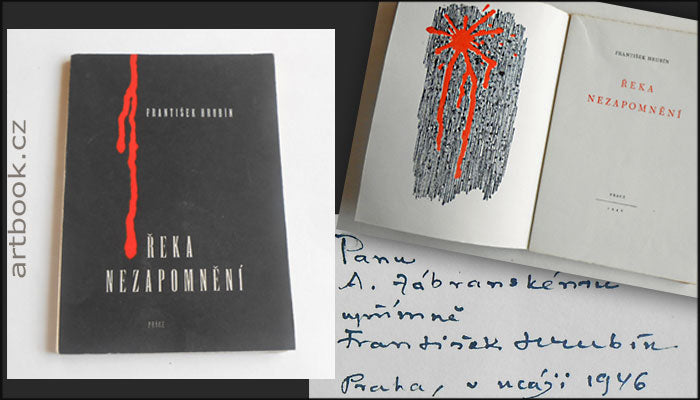 artbook.cz
FRANTIŠEK HRUBÍN
ŘEKA
NEZAPOMNĚNÍ
PRÁCE
FRANTIŠEK HRUBÍN
ŘEKA
NEZAPOMNĚNÍ
PRÁCE
1946
Panu
A. Zábranskému
upřímně
František Hrubín
Praha, v
1946